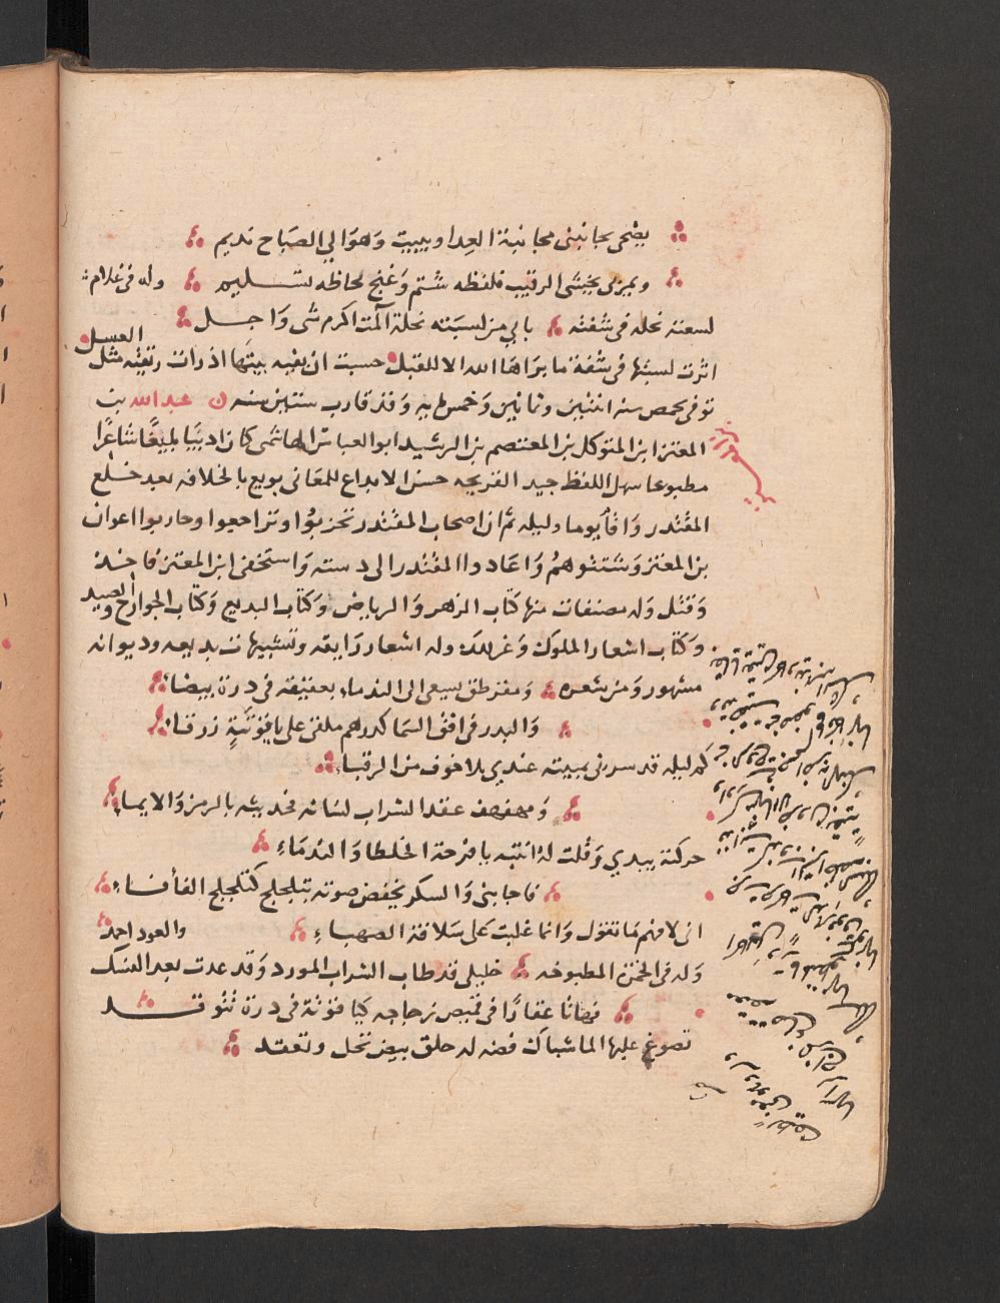 يضحى يجانبنى مجانبة العدا ويبيت وهو الي الصباح نديم
ويمر بى يخشى الرقيب فلفظه شتم وغنج لحاظه تسليم وله فى غلام
لسعته نحله فى شفته بابي من لسبته نحلة آلمت اكرم شى واجل
اثرت لسبتها فى شفة ما براها الله الا للقبل حسبت ان بفيه بيتها اذ رات ريقته مثل العسل
توفى بحمص سنه اثنتين وثمانين وخمسمايه وقد قارب ستين سنه عبد الله بن
المعتز ابن المتوكل بن المعتصم بن الرشيد ابو العباس الهاشمى كان اديبا بليغا شاعرا
مطبوعا سهل اللفظ جيد القريحه حسن الابداع للمعانى بويع بالخلافه بعد خلع
المقتدر واقام يوما وليله ثم ان اصحاب المقتدر تحزبوا وتراجعوا وحاربوا اعوان
بن المعتز وشتتوهم واعادوا المقتدر الى دسته واستخفى ابن المعتز فاخذ
وقتل وله مصنفات منها كتاب الزهر والرياض وكتاب البديع وكتاب الجوارح والصيد
وكتاب اشعار الملوك وغير ذلك وله اشعار رايقه وتشبيهات بديعه وديوانه
مشهور ومن شعره ومقرطق يسعى الى الندماء بعقيقة فى درة بيضاء
والبدر فى افق السما كدرهم ملقى على ياقوتة زرقاء
كم ليله قد سرنى بمبيته عندي بلا خوف من الرقباء
ومهفهف عقد الشراب لسانه فحديثه بالرمز والايماء
حركته بيدي وقلت له انتبه يا فرحة الخلطا والندماء
فاجابنى والسكر يخفض صوته بتلجلج كتلجلج الفأفاء
انى لافهم ما تقول وانما غلبت على سلافة الصهباء
وله فى الخمرة المطبوخه خليلى قد طاب الشراب المورد وقد عدت بعد النسك والعود احمد
فهاتا عقارا فى قميص زجاجه كياقوتة فى درة تتوقد
تصوغ عليها الما شباك فضه له حلق بيض تحل وتعقد